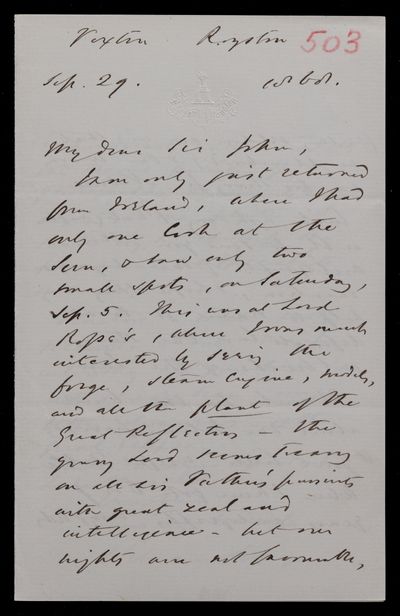 Royston 503
Sep. 29. 1868.
My dear Sir John,
I am only just returned
from Ireland, where I had
only one look at the
Sun, & saw only two
small spots, on Saturday,
Sep. 5. This was at Lord
Rosse's, where I was much
interested by seeing the
forge, steam engine, models,
and all the plant of the
Great Reflectors – the
young Lord seems to carry
on all his Father's pursuits
with great zeal and
intelligence – but our
nights were not favourable,